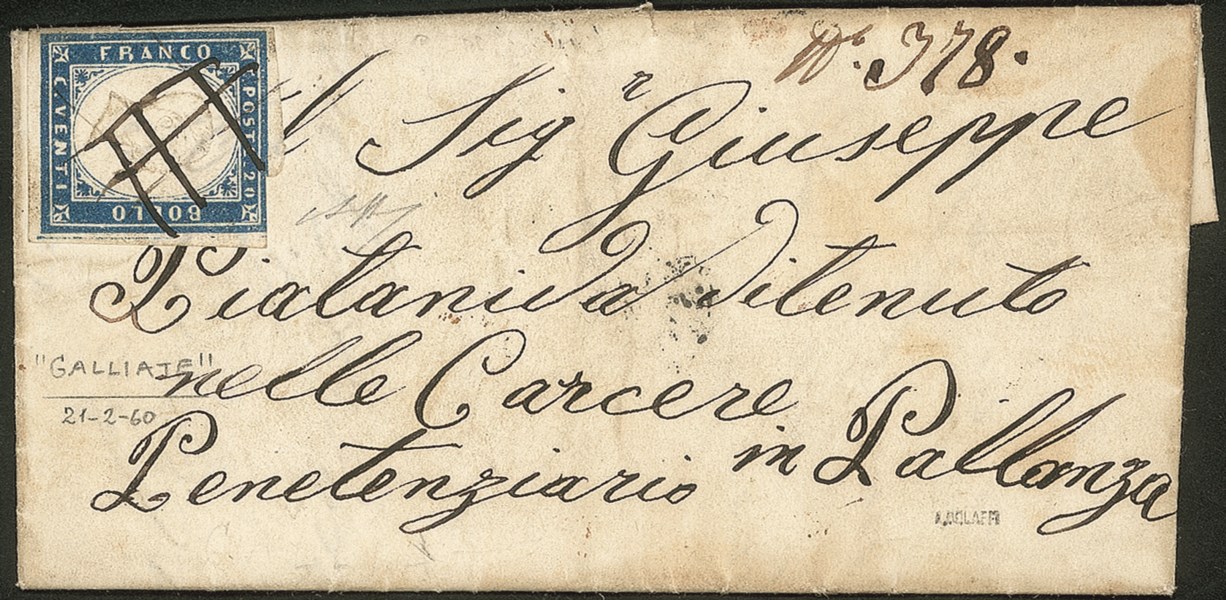 FRANCO
C. VENTI
POST 20
BOLLO
N.º 378.
Al Sig.r Giuseppe
Piatanida Ditenuto
nelle Carcere
Penetenziario in Pallanza
"GALLIATE"
21-2-60
A. BOLAFFI